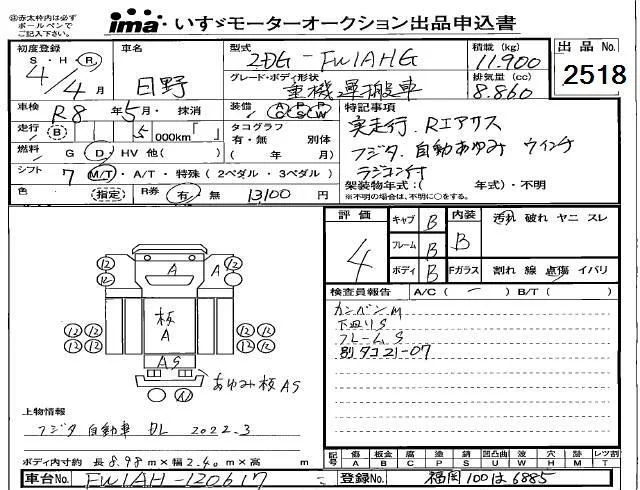 注赤太枠内は必ず
ボールペンで
ご記入下さい。
ima いすゞモーターオークション出品申込書
初度登録 S・H・R 4/4月
車名 日野
型式 2DG-FW1AHG
積載 (kg) 11,900
出品No. 2518
グレード・ボディ形状 重機運搬車
排気量 (cc) 8,860
車検 R8年5月・抹消
装備 AC PS PW
特記事項
実走行. Rエアサス
フジタ. 自動あゆみ ウインチ
ラジコン付
走行 B 5 000km「 」
タコグラフ 有・無 別体
( 年 月)
燃料 G D HV 他( )
架装物年式:( 年式)・不明
※不明の場合は、年式不明に○をする。
シフト 7 M/T・A/T・特殊 (2ペダル・3ペダル)
色 (指定)
R券 有・無 13100 円
評価 4
キャブ B
フレーム B
ボディ B
内装 B
汚れ 破れ ヤニ スレ
Fガラス 割れ 線 点傷 イバリ
検査員報告 A/C( ー ) B/T( )
カンバンM
下廻りS
フレームS
別タコ21-07
A
A
板
A
AS
あゆみ板AS
上物情報
フジタ 自動車 BL 2022.3
ボディ内寸約 長8.98m×幅2.40m×高 m
記号 傷 A 板金 B 腐 C 塗 P 錆 S 凹凸曲 U 波 W 穴 H 汚 M レツ割 T
車台No. FW1AH-120617
登録No. 福岡100は6885